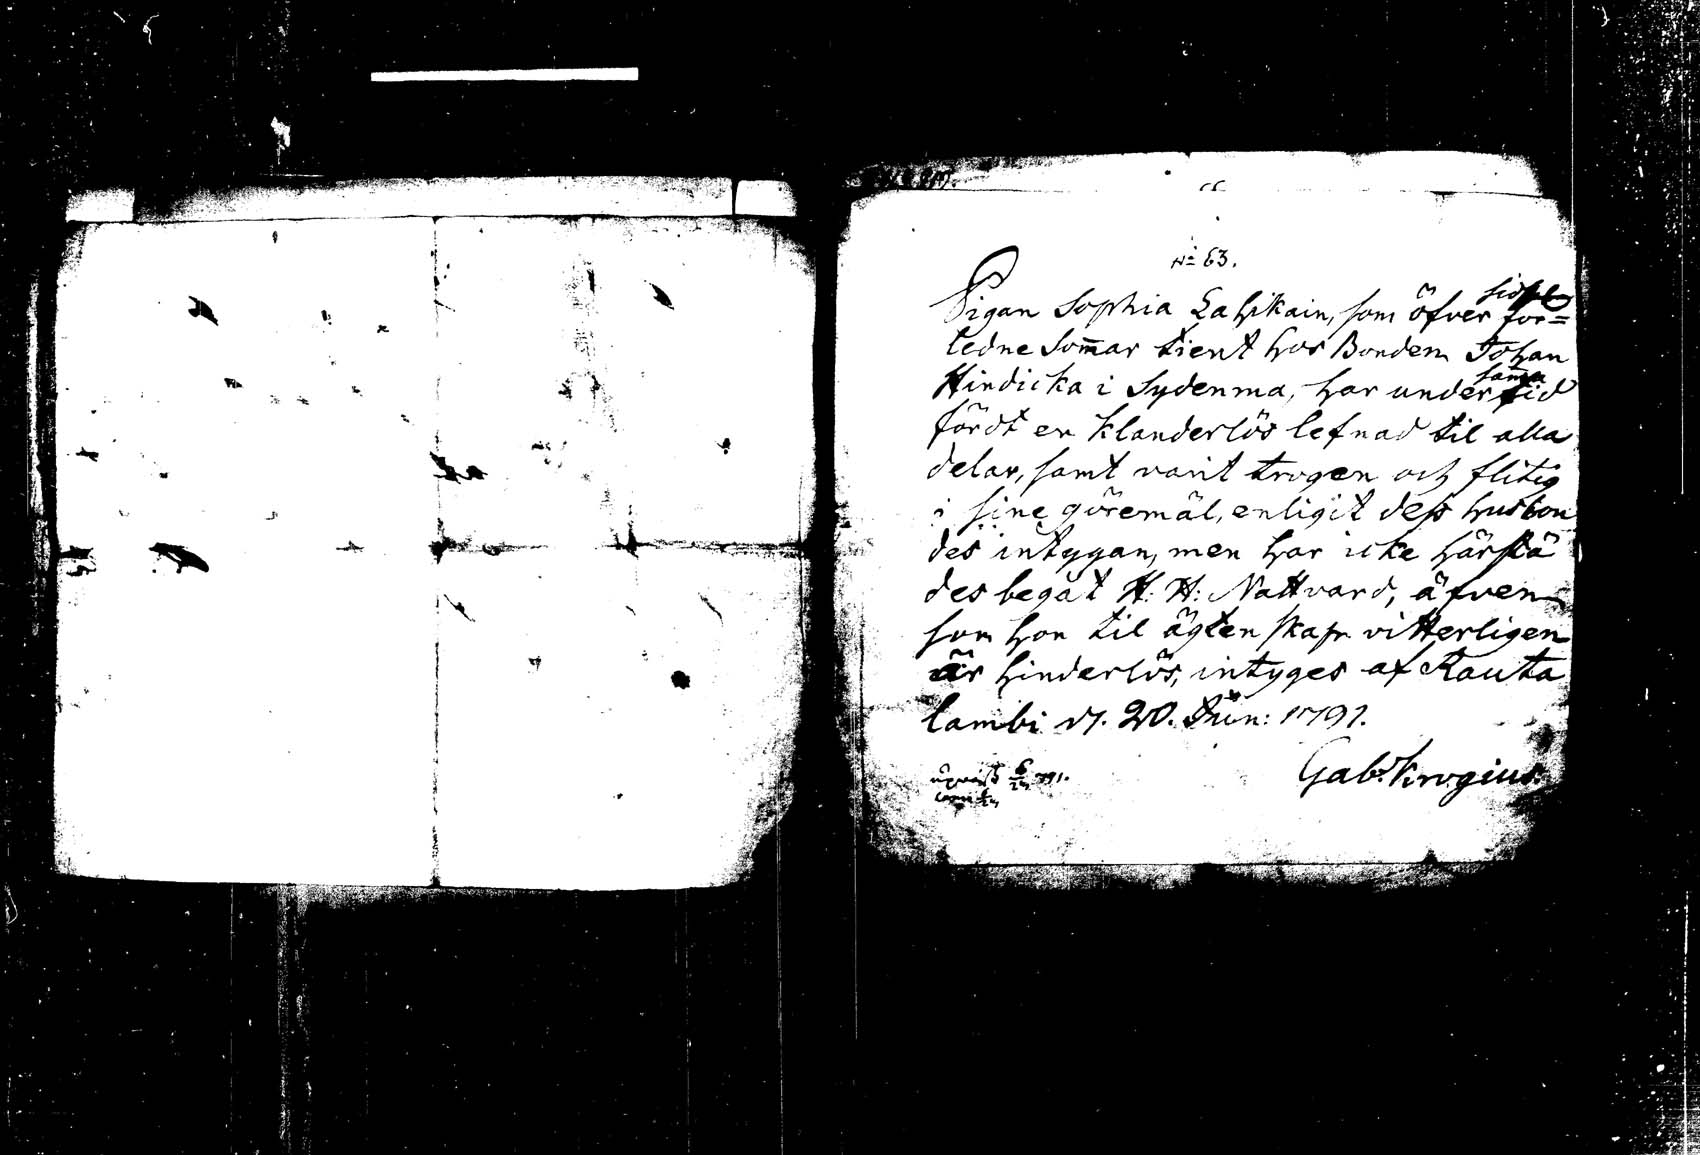 No 63.
Pigan Sophia Lahikain, som öfver sidst for=
ledne Som̄ar tient hos Bonden Johan
Hindicka i Sydenma, har under sam̄a tid
fördt en klanderlös lefnad til alla
delar, samt varit trogen och flitig
i sine göremål, enligit dess husbon
des intygan, men har icke härstä
des begåt H: H: Nattvard, äfven
som hon til ägtenskap vitterligen
är hinderlös, intyges af Rauta
lambi d. 20. Jun: 1791.
Gabr. Krogius.
791.